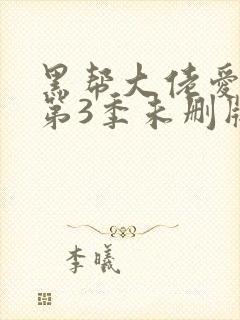 黑帮大佬爱
第3季未删
李曦